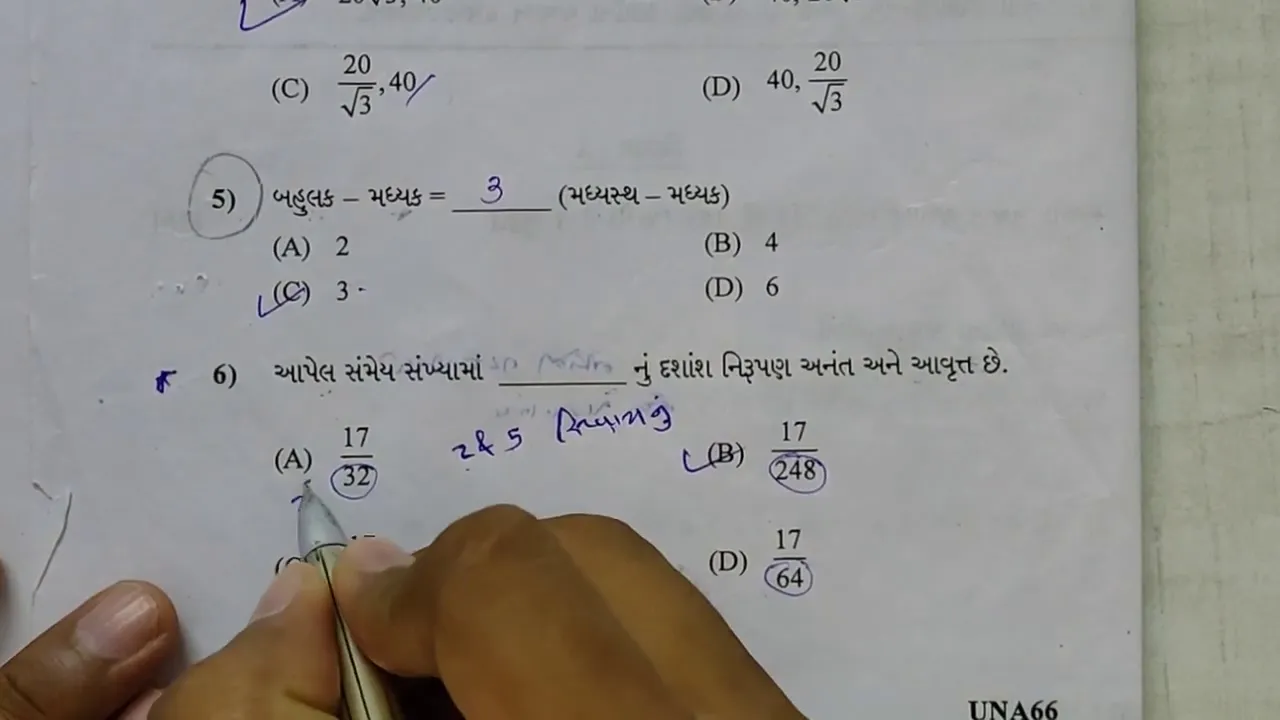 (C) 20/√3, 40
(D) 40, 20/√3
5) બહુલક – મધ્યક = 3 (મધ્યસ્થ – મધ્યક)
(A) 2
(B) 4
(C) 3
(D) 6
6) આપેલ સંમેય સંખ્યામાં ________ નું દશાંશ નિરૂપણ અનંત અને આવૃત્ત છે.
(A) 17/32
2 & 5 સિવાયનું
(B) 17/248
(D) 17/64
UNA66